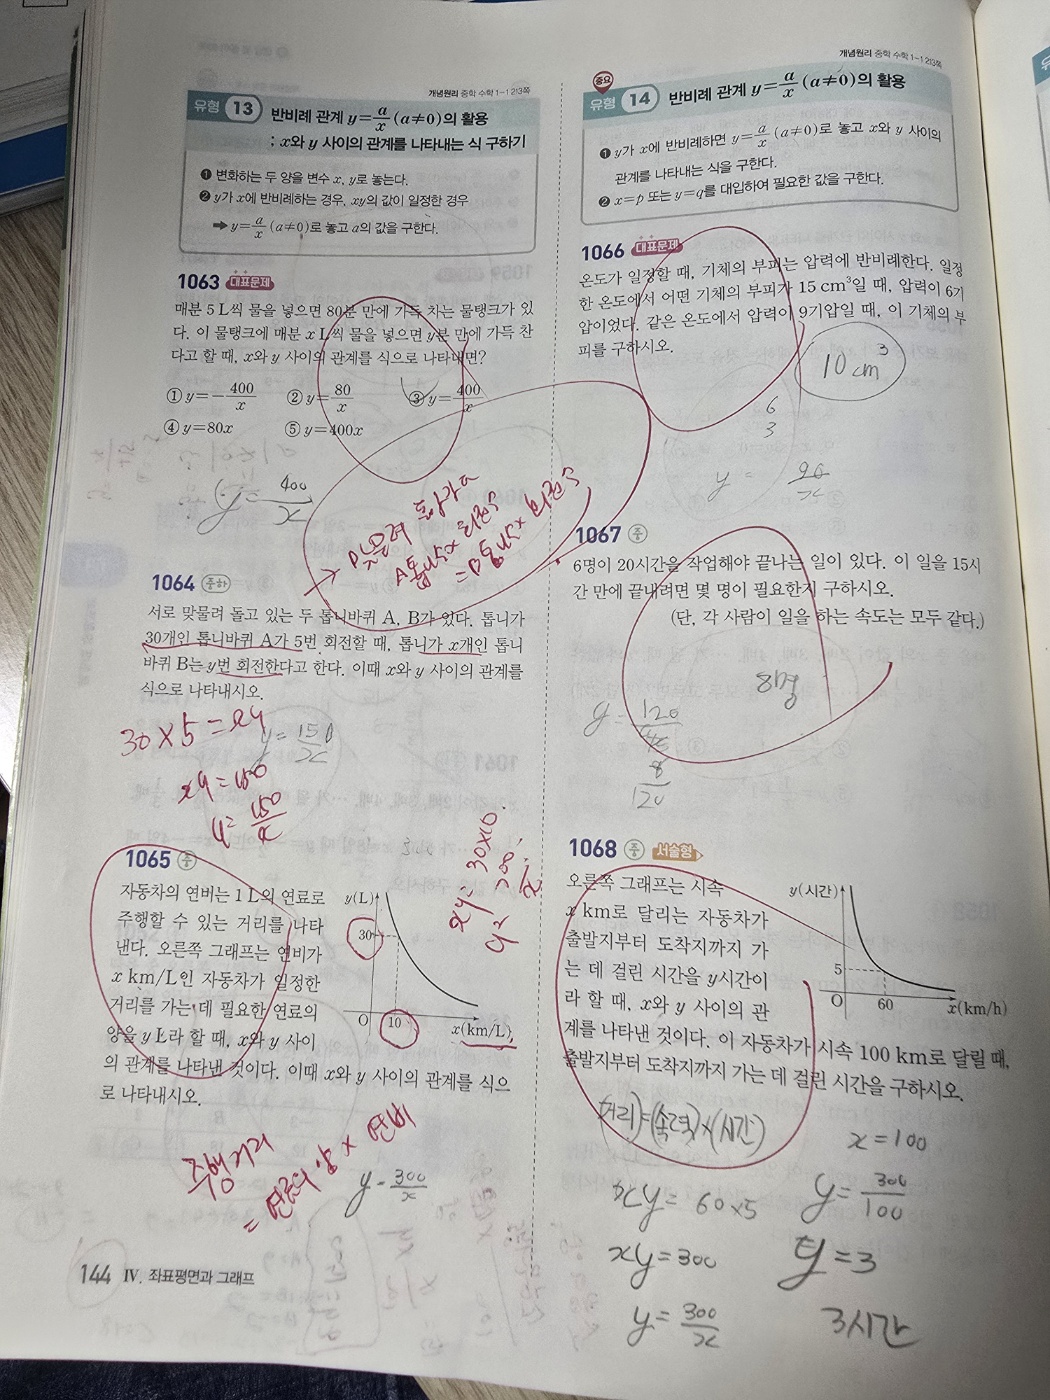 개념원리 중학 수학 1-1 213쪽
유형 13 반비례 관계 y=a/x (a≠0)의 활용
: x와 y 사이의 관계를 나타내는 식 구하기
❶ 변화하는 두 양을 변수 x, y로 놓는다.
❷ y가 x에 반비례하는 경우, xy의 값이 일정한 경우
➡ y=a/x (a≠0)로 놓고 a의 값을 구한다.
1063 대표문제
매분 5 L씩 물을 넣으면 80분 만에 가득 차는 물탱크가 있
다. 이 물탱크에 매분 x L씩 물을 넣으면 y분 만에 가득 찬
다고 할 때, x와 y 사이의 관계를 식으로 나타내면?
① y=-400/x ② y=80/x ③ y=400/x
④ y=80x ⑤ y=400x
y=400/x
맞물려 돌아가
A톱니수×회전수
=B톱니수×회전수
1064 중하
서로 맞물려 돌고 있는 두 톱니바퀴 A, B가 있다. 톱니가
30개인 톱니바퀴 A가 5번 회전할 때, 톱니가 x개인 톱니
바퀴 B는 y번 회전한다고 한다. 이때 x와 y 사이의 관계를
식으로 나타내시오.
30×5=xy
y=150/x
xy=150
y=150/x
1065 중
자동차의 연비는 1 L의 연료로
주행할 수 있는 거리를 나타
낸다. 오른쪽 그래프는 연비가
x km/L인 자동차가 일정한
거리를 가는 데 필요한 연료의
양을 y L라 할 때, x와 y 사이
의 관계를 나타낸 것이다. 이때 x와 y 사이의 관계를 식으
로 나타내시오.
y(L)
30
O 10 x(km/L)
xy=30×10
y=300/x
주행거리
=연료의 양×연비
y=300/x
144 Ⅳ. 좌표평면과 그래프
개념원리 중학 수학 1-1 213쪽
중요
유형 14 반비례 관계 y=a/x (a≠0)의 활용
❶ y가 x에 반비례하면 y=a/x (a≠0)로 놓고 x와 y 사이의
관계를 나타내는 식을 구한다.
❷ x=p 또는 y=q를 대입하여 필요한 값을 구한다.
1066 대표문제
온도가 일정할 때, 기체의 부피는 압력에 반비례한다. 일정
한 온도에서 어떤 기체의 부피가 15 cm³일 때, 압력이 6기
압이었다. 같은 온도에서 압력이 9기압일 때, 이 기체의 부
피를 구하시오.
10 cm³
6
3
y=90/x
1067 중
6명이 20시간을 작업해야 끝나는 일이 있다. 이 일을 15시
간 만에 끝내려면 몇 명이 필요한지 구하시오.
(단, 각 사람이 일을 하는 속도는 모두 같다.)
8명
8
120
1068 중 서술형
오른쪽 그래프는 시속
x km로 달리는 자동차가
출발지부터 도착지까지 가
는 데 걸린 시간을 y시간이
라 할 때, x와 y 사이의 관
계를 나타낸 것이다. 이 자동차가 시속 100 km로 달릴 때,
출발지부터 도착지까지 가는 데 걸린 시간을 구하시오.
y(시간)
5
O 60 x(km/h)
(거리)=(속력)×(시간)
xy=60×5
xy=300
y=300/x
x=100
y=300/100
y=3
3시간